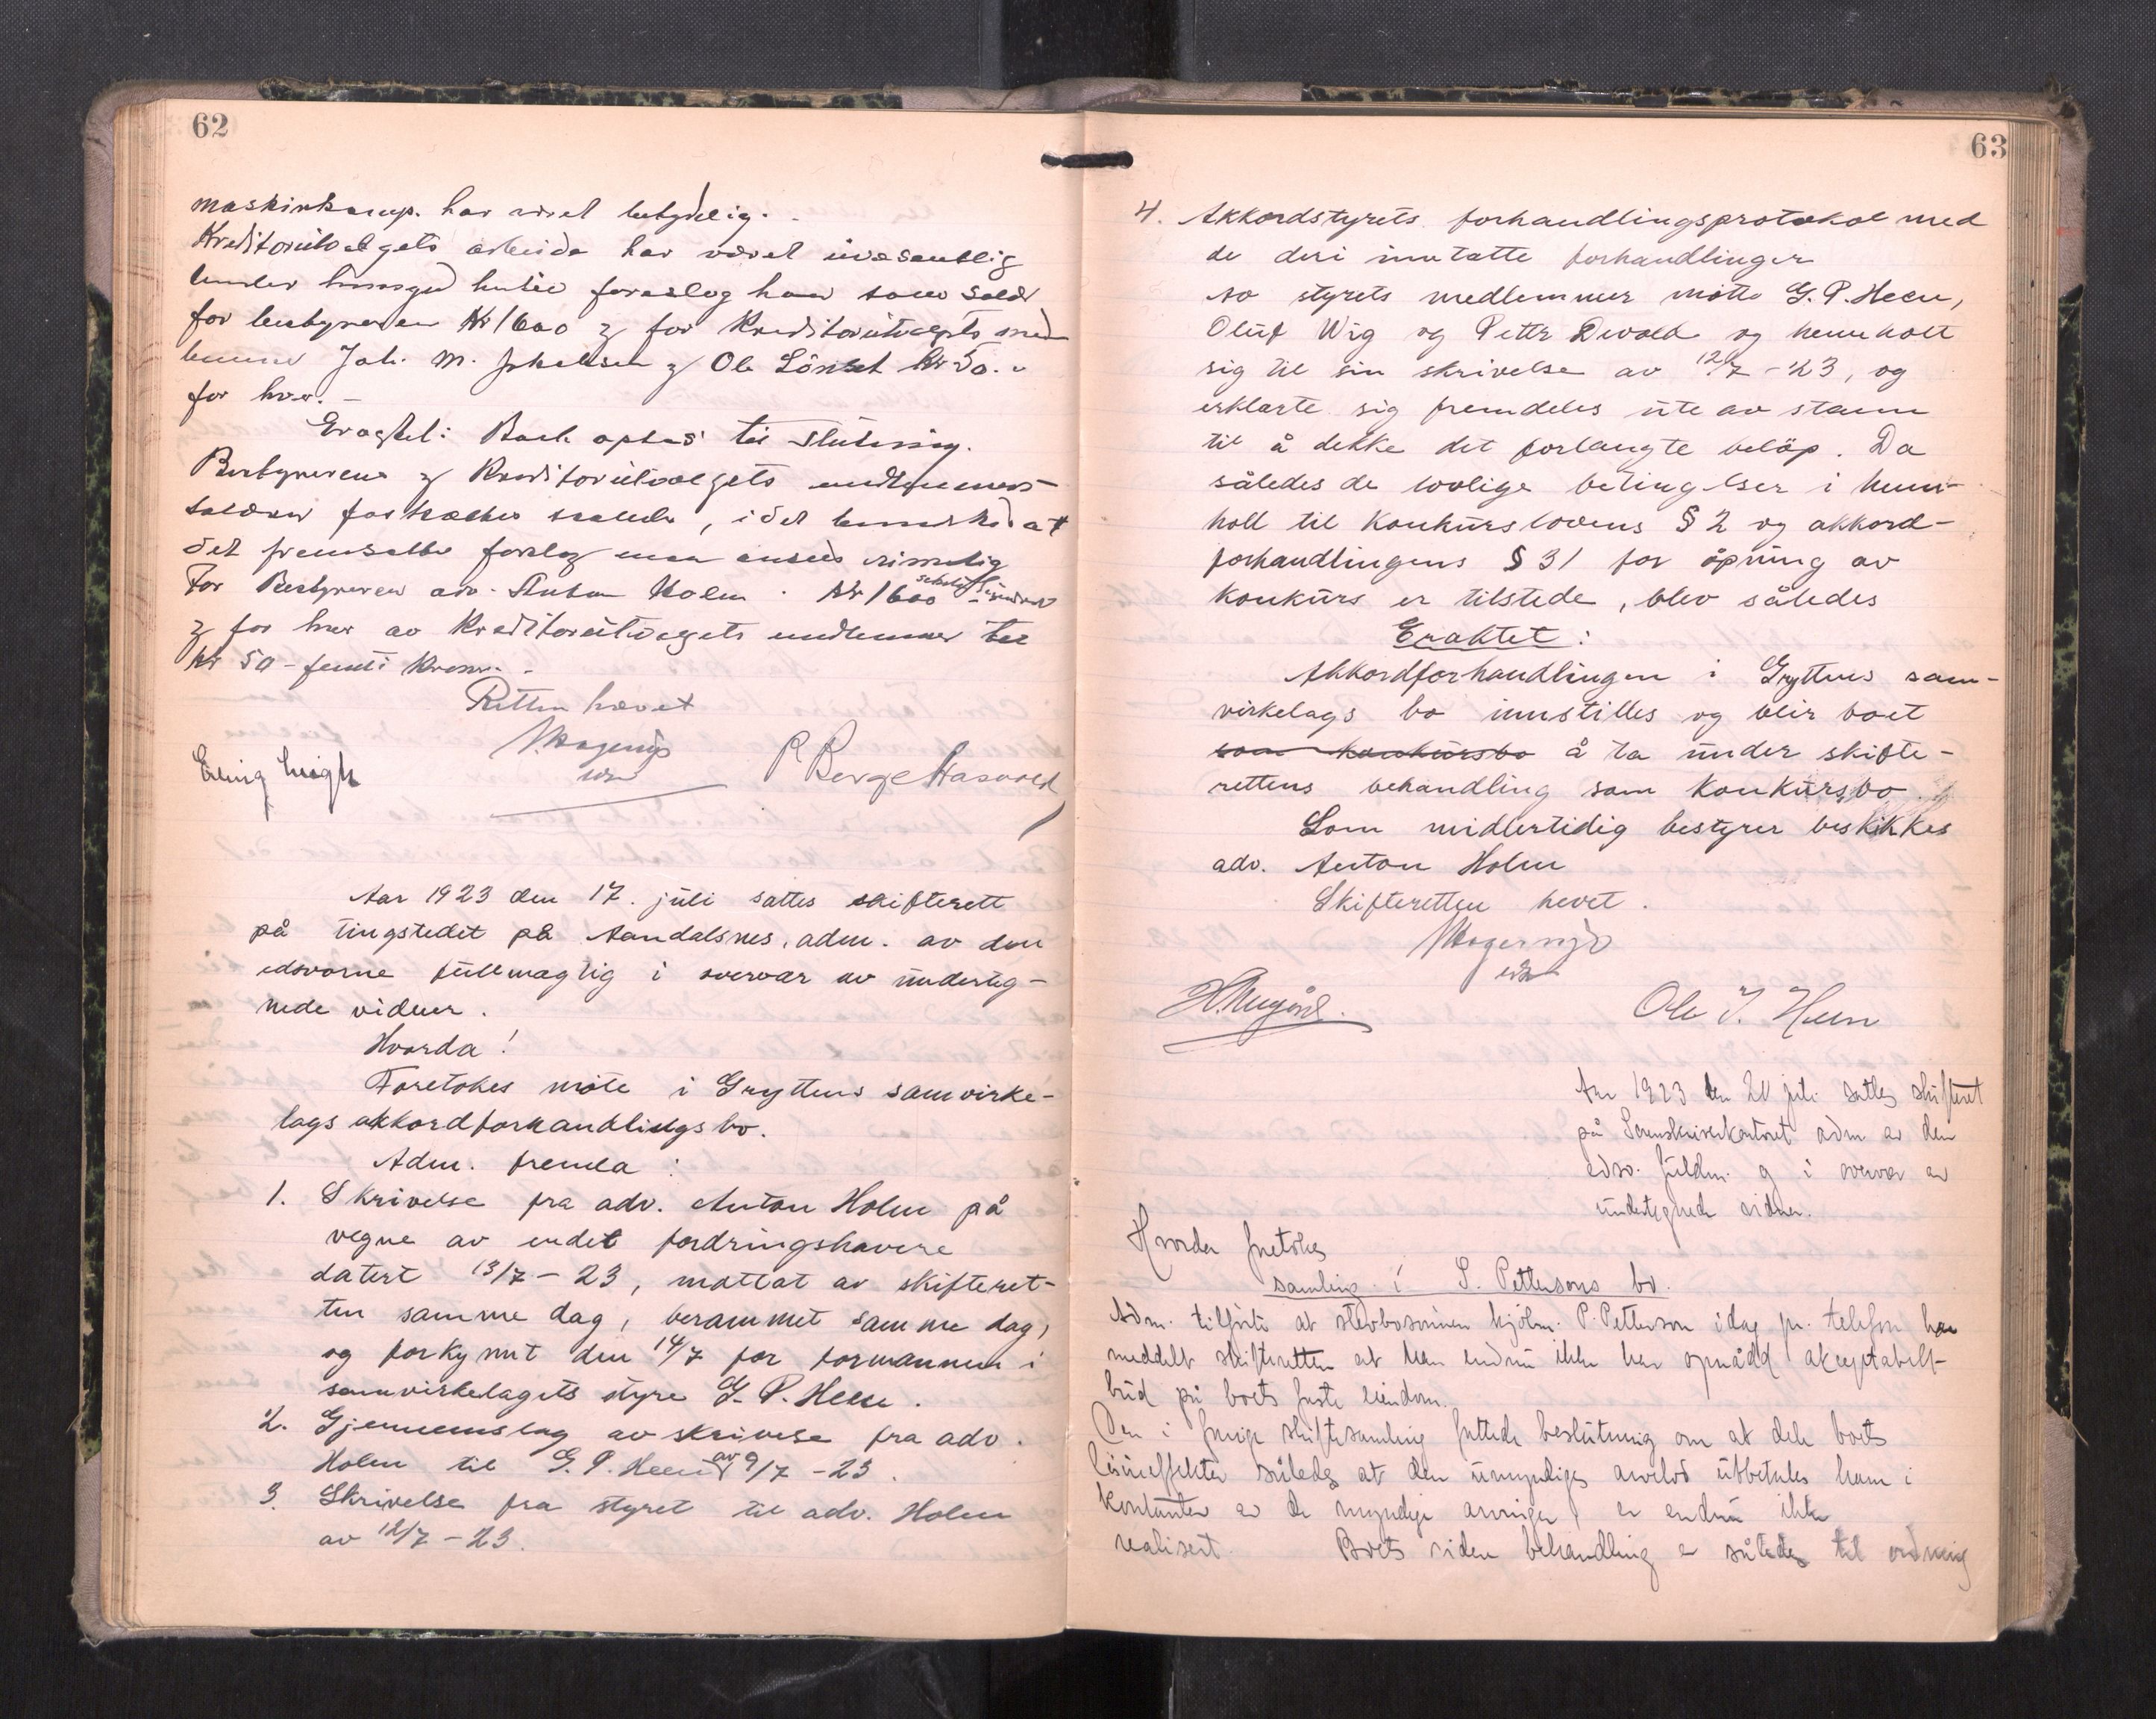 62
maskinkomp. har været betydelig.
Kreditorutvalgets arbeide har været uvæsentlig
under foreslog han som salær
for bestyreren Kr 1600 & for Kreditorutvalgets med-
lemmer Joh. M. & Ole Lönset Kr 50.-
for hver. -
Eragtet: Boet optas til slutning.
Bestyrerens & Kreditorutvalgets medlemmers
salærer fastsættes saaledes, idet bemerkes at
det fremsatte forslag maa ansees rimelig
For Bestyreren adv. Anton Holm Kr 1600
& for hver av Kreditorutvalgets medlemmer til
Kr 50 - femti Kroner. -
Retten hævet
Erling P Berge Hasvold
Aar 1923 den 17. juli sattes skifterett
på tingstedet på Aandalsnes, adm. av den
edsvorne fullmagtig i overvær av underteg-
nede vidner.
Hvorda!
Foretokes møte i Gryttens samvirke-
lags akkordforhandlingsbo.
Adm. fremla:
1. Skrivelse fra adv. Anton Holm på
vegne av endel fordringshavere
datert 13/7 - 23, mottat av skifteret-
ten samme dag, berammet samme dag,
og forkynnt den 14/7 for formannen i
samvirkelagets styre G. P. Heen.
2. Gjennemslag av skrivelse fra adv.
Holm til G. P. Heen av 9/7 - 23.
3. Skrivelse fra styret til adv. Holm
av 12/7 - 23.
63
4. Akkordstyrets forhandlingsprotokol med
de deri inntatte forhandlinger
Av styrets medlemmer møtte G. P. Heen,
Oluf Wig og Petter Devold og henholt
sig til sin skrivelse av 12/7 - 23, og
erklærte sig fremdeles ute av stann
til å dekke det forlangte beløp. Da
således de lovlige betingelser i henn-
holl til Konkurslovens § 2 og akkord-
forhandlingens § 31 for åpning av
konkurs er tilstede, blev således
Eraktet:
Akkordforhandlingen i Gryttens sam-
virkelags bo innstilles og blir boet
som konkursbo å ta under skifte-
rettens behandling som konkursbo.
Som midlertidig bestyrer beskikkes
adv. Anton Holm
Skifteretten hevet.
Ole J. Heen
Aar 1923 den 20 juli sattes skifteret
på Sorenskriverkontoret adm av den
edsv. fuldm. og i overvær av
undertegnede vidner.
Hvorda foretokes
samling i S. Pettersons bo.
Adm. tilførte at stervbosønnen kjøbm. P. Petterson idag pr. telefon har
meddelt skifteretten at han endnu ikke har opnådd akceptabelt
bud på boets faste eiendom.
Den i forrige skiftesamling fattede beslutning om at dele boets
løsøreffekter således at den umyndiges arvelod utbetales ham i
kontanter av de myndige arvinger er endnu ikke
realisert. Boets videre behandling er således til ordning